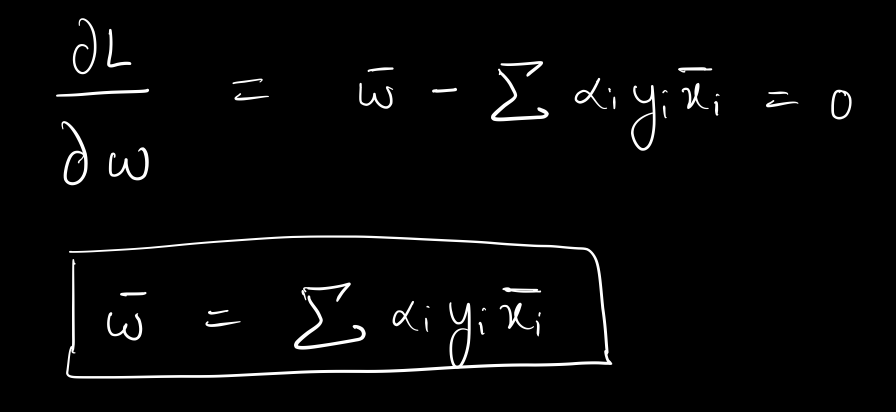 ∂L/∂w = w̄ − Σ αᵢ yᵢ x̄ᵢ = 0
w̄ = Σ αᵢ yᵢ x̄ᵢ